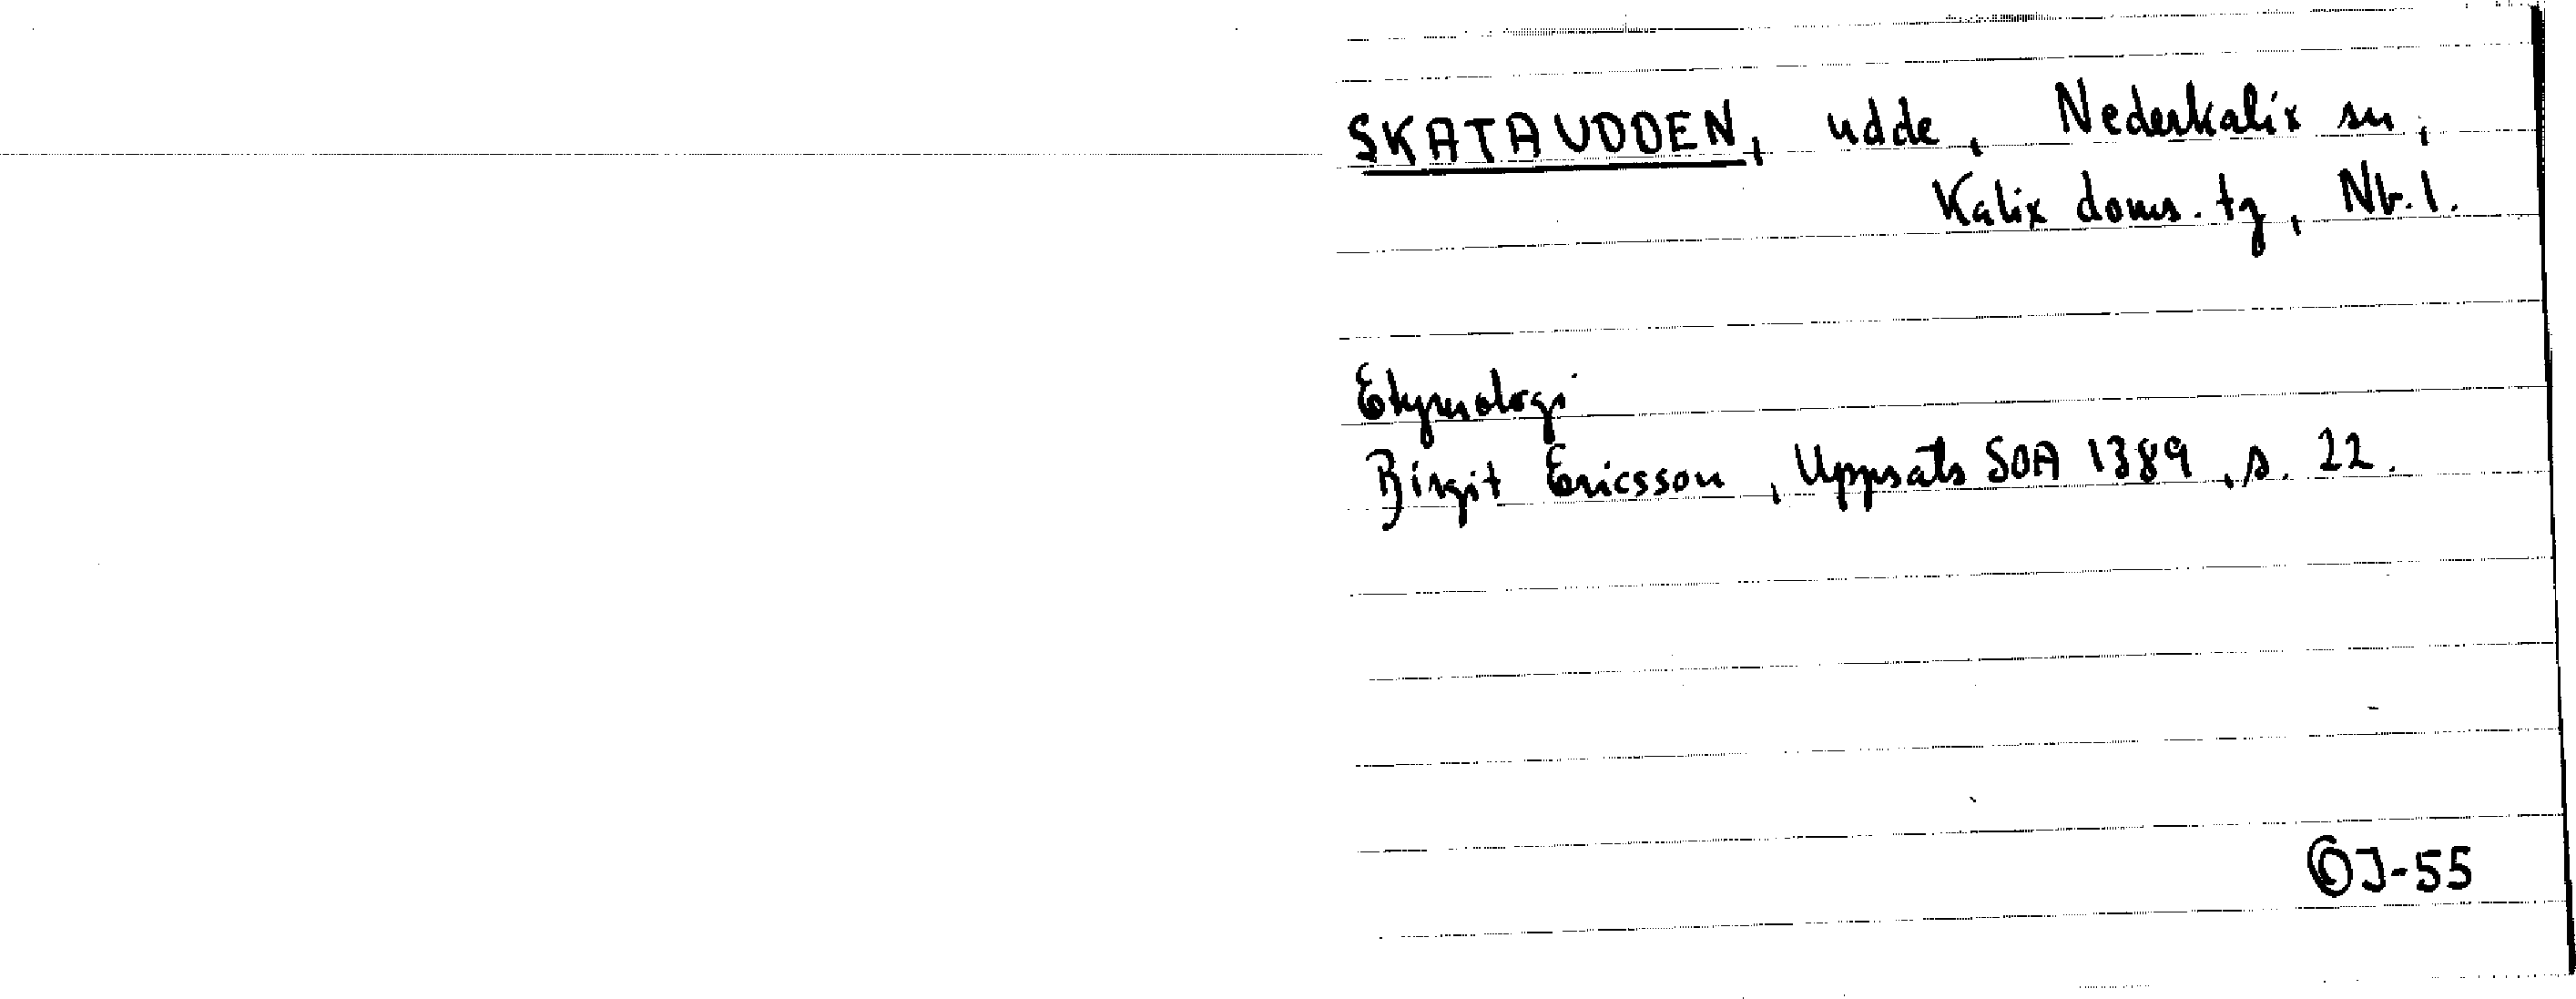 SKATAUDDEN, udde, Nederkalix sn,
Kalix doms. tg, Nb. l.
Etymologi
Birgit Ericsson, Uppsats SOA 1389, s. 22.
OJ-55